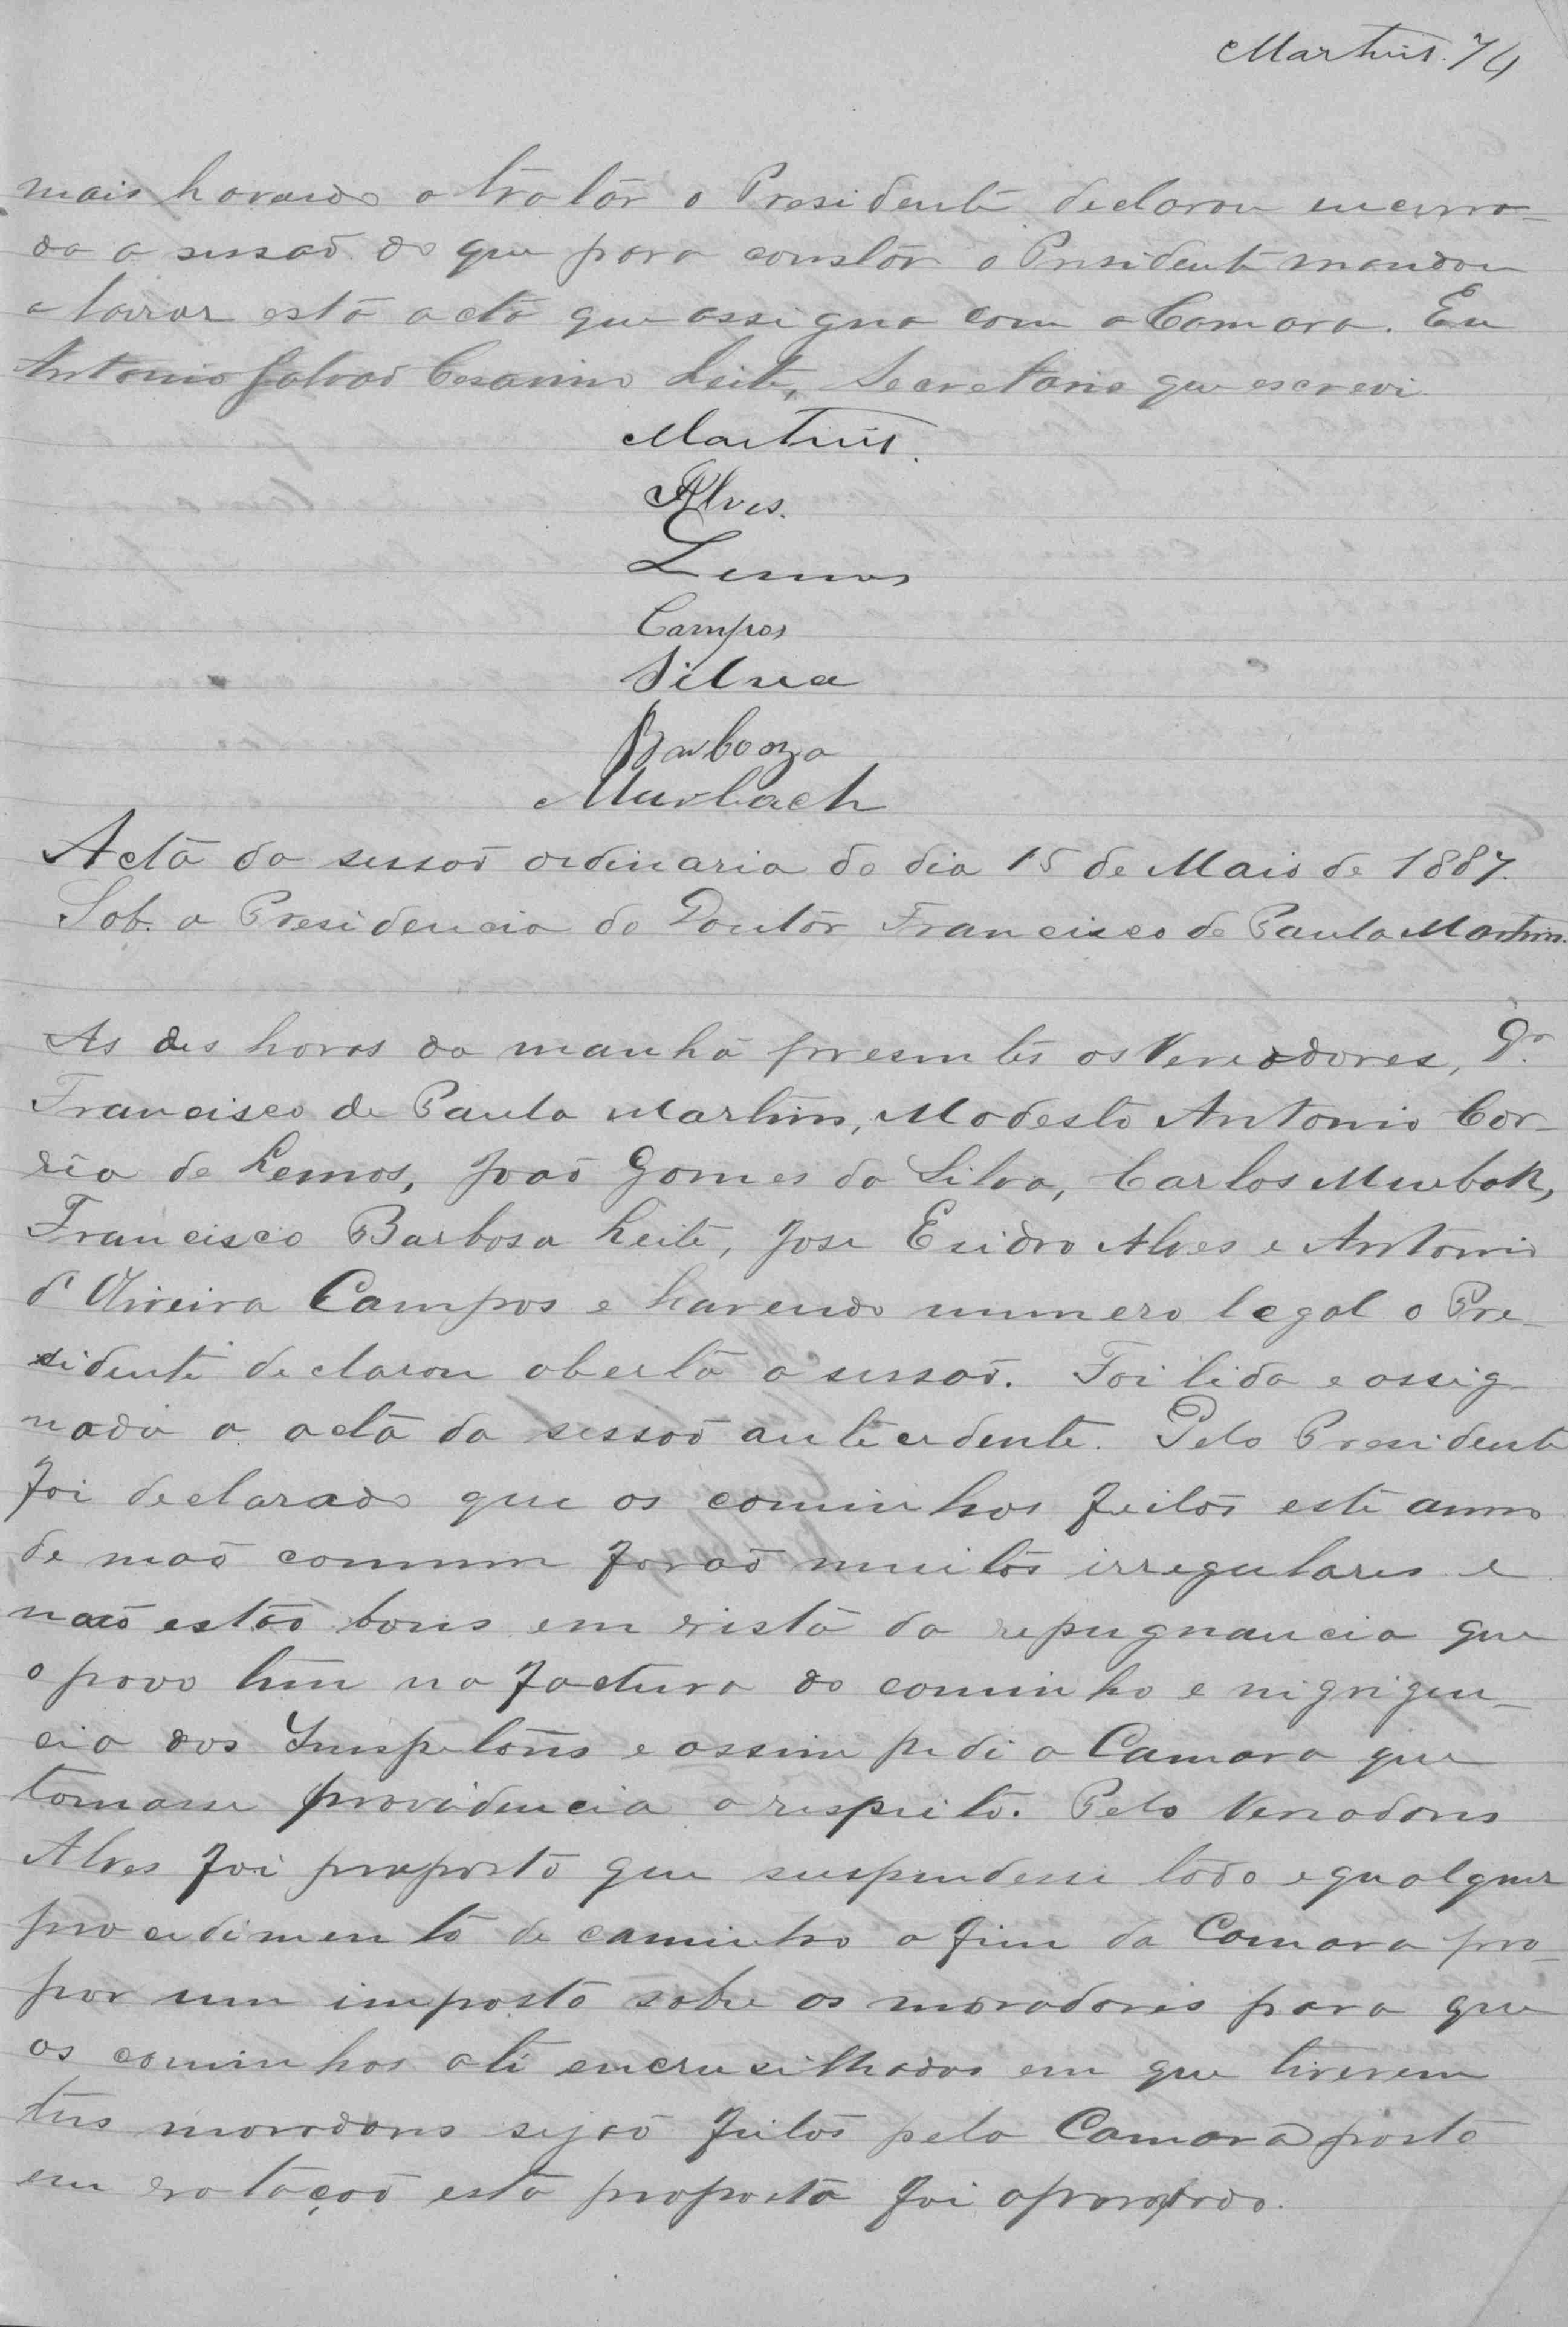 Martins. 74
mais havendo a tratar o Presidente declarou encerra-
da a sessaõ do que para constar o Presidente mandou
a lavrar esta acta que assigna com a Camara. Eu
Antonio Galvaõ Cesarino Leite, Secretario que escrevi
Martins.
Alves.
Lemos
Campos
Silva
Barboza
Murbach
Acta da sessaõ ordinaria do dia 15 de Maio de 1887.
Sob. a Presidencia do Doutor Francisco de Paula Martins.
As des horas da manhã presentes os Vereadores, Dr.
Francisco de Paula Martins, Modesto Antonio Cor-
rêa de Lemos, Joaõ Gomes da Silva, Carlos Murbak,
Francisco Barbosa Leite, Jose Esidro Alves e Antonio
d'Oliveira Campos e havendo numero legal o Pre-
sidente declarou aberta a sessaõ. Foi lida e assig-
nada a acta da sessaõ antecedente. Pelo Presidente
foi declarado que os caminhos feitos este anno
de maõ commum foraõ muitos irregulares e
naõ estaõ bons em vista da repugnancia que
o povo tem na factura do caminho e nigrigen-
cia dos Inspetores e assim pedi a Camara que
tomasse providencia a respeito. Pelo Vereadores
Alves foi proposto que suspendesse todo e qualquer
procedimento de caminho a fim da Camara pro-
por um imposto sobre os moradores para que
os caminhos até encrusilhadas em que tiverem
tres moradores sejaõ feitos pela Camara posto
em votaçaõ esta proposta foi aprovado.